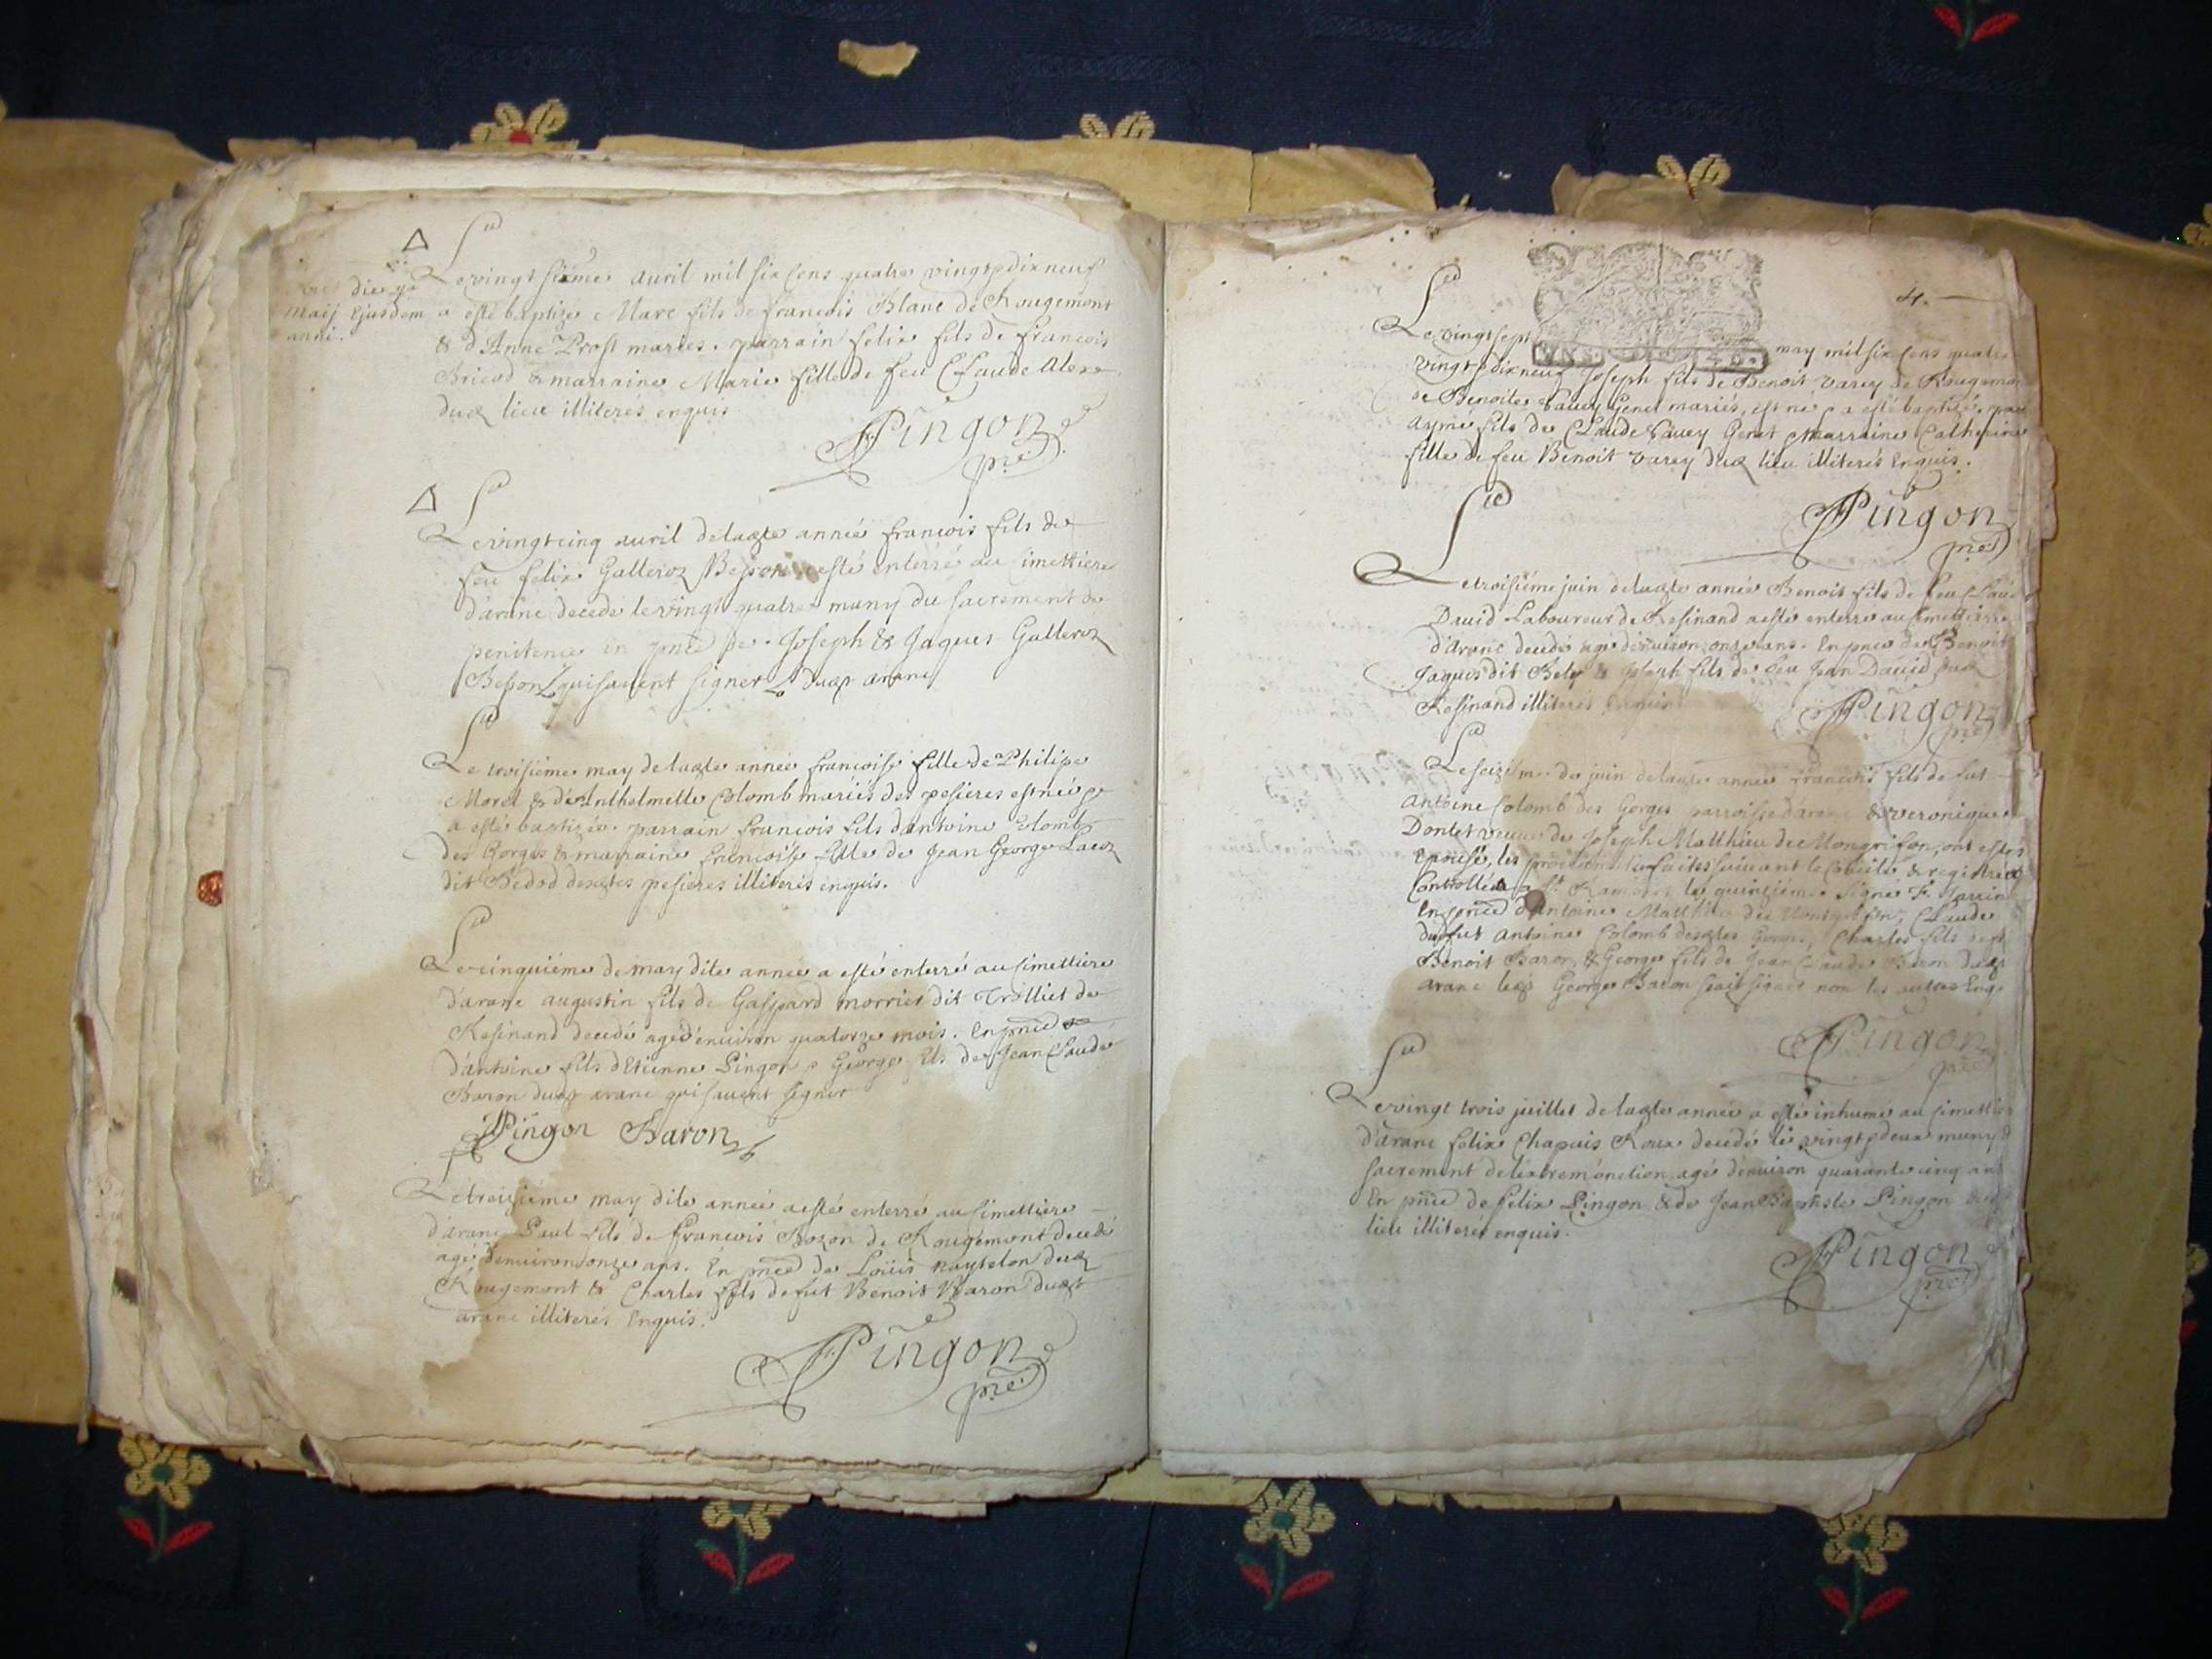 Le vingt sixième auril mil six cens quatre vingt dix neuf
maij ejusdem
anni.
a esté baptizé Marc fils de francois Blanc de Rougemont
& d'Anne Prost mariés. parrain felix fils de francois
& marraine Marie fille de feu Claude Alex
dud lieu illiterés enquis
Pingon
pre
Le vingt cinq auril de lad.te année francois fils de
feu felix Galleroz Besson esté enterré au simettiere
d'aranc decedé le vingt quatre muny du sacrement de
penitence in pnce de Joseph & Jaques Galleroz
Besson qui sauent signer dud aranc
Le troisiéme may de lad.te année francoise fille de Philipe
Morel & d'Anthelmette Colomb mariés des pesieres est née &
a esté baptizée. parrain francois fils d'antoine Colomb
des Gorges & marraine francoise fille de Jean George
dit desd.tes pesieres illiterés enquis.
Le cinquiéme de may dite année a esté enterré au simettiere
d'aranc augustin fils de Gaspard morrier dit Trolliet de
Resinand decedé agé d'enuiron quatorze mois. En pnce
d'antoine fils d'Etienne Pingon & George fils de Jean Claude
Baron dud aranc qui sauent signer
Pingon Baron
Le treiziéme may dite année a esté enterré au simettiere
d'aranc Paul fils de francois Bozon de Rougemont decedé
agé d'enuiron onze ans. En pnce de Loüis dud
Rougemont & Charles fils de fut Benoit Baron dud
aranc illiterés Enquis.
Pingon
pre
4.
Le vingt sept may mil six cens quatre
vingt dix neuf Joseph fils de Benoit Varey de Rougemo
& Benoite Sauey Genet mariés, est né & a esté baptizé,
Aymé fils de Claude Sauey Genet Marraine Catherine
fille de feu Benoit Varey dud lieu illiterés Enquis.
Pingon
pre
Le troisiéme juin de lad.te année Benoit fils de feu Claude
Dauid Laboureur de Resinand a esté enterré au simettiere
d'Aranc decedé agé d'enuiron onze ans. En pnce de Benoit
Jaques dit Bely & Joseph fils de feu Jean Dauid dud
Resinand illiterés
Pingon
pre
Le seiziéme de juin de lad.te année francois fils de fut
Antoine Colomb des Gorges parroisse d'aranc & Veronique
Dontet veuue de Joseph Matthieu de Mongrifon, ont estés
Epousé, les faites suiuant le Concile & registré
Controllée a St. Rambert le quinziéme Signé
En pnce d'Antoine Matthieu de Claude
dud fut Antoine Colomb desd.tes Gorges, Charles fils de
Benoit Baron, & George fils de Jean Claude Baron dud
aranc led George Baron scait signer non les autres Enq.
Pingon
pre
Le vingt trois juillet de lad.te année a esté inhumé au simettiere
d'aranc felix Chapuis Roux decedé le vingt deux muny
sacrement de l'extremonction agé d'enuiron quarante cinq ans
En pnce de felix Pingon & de Jean Baptiste Pingon dud
lieu illiterés enquis.
Pingon
pre